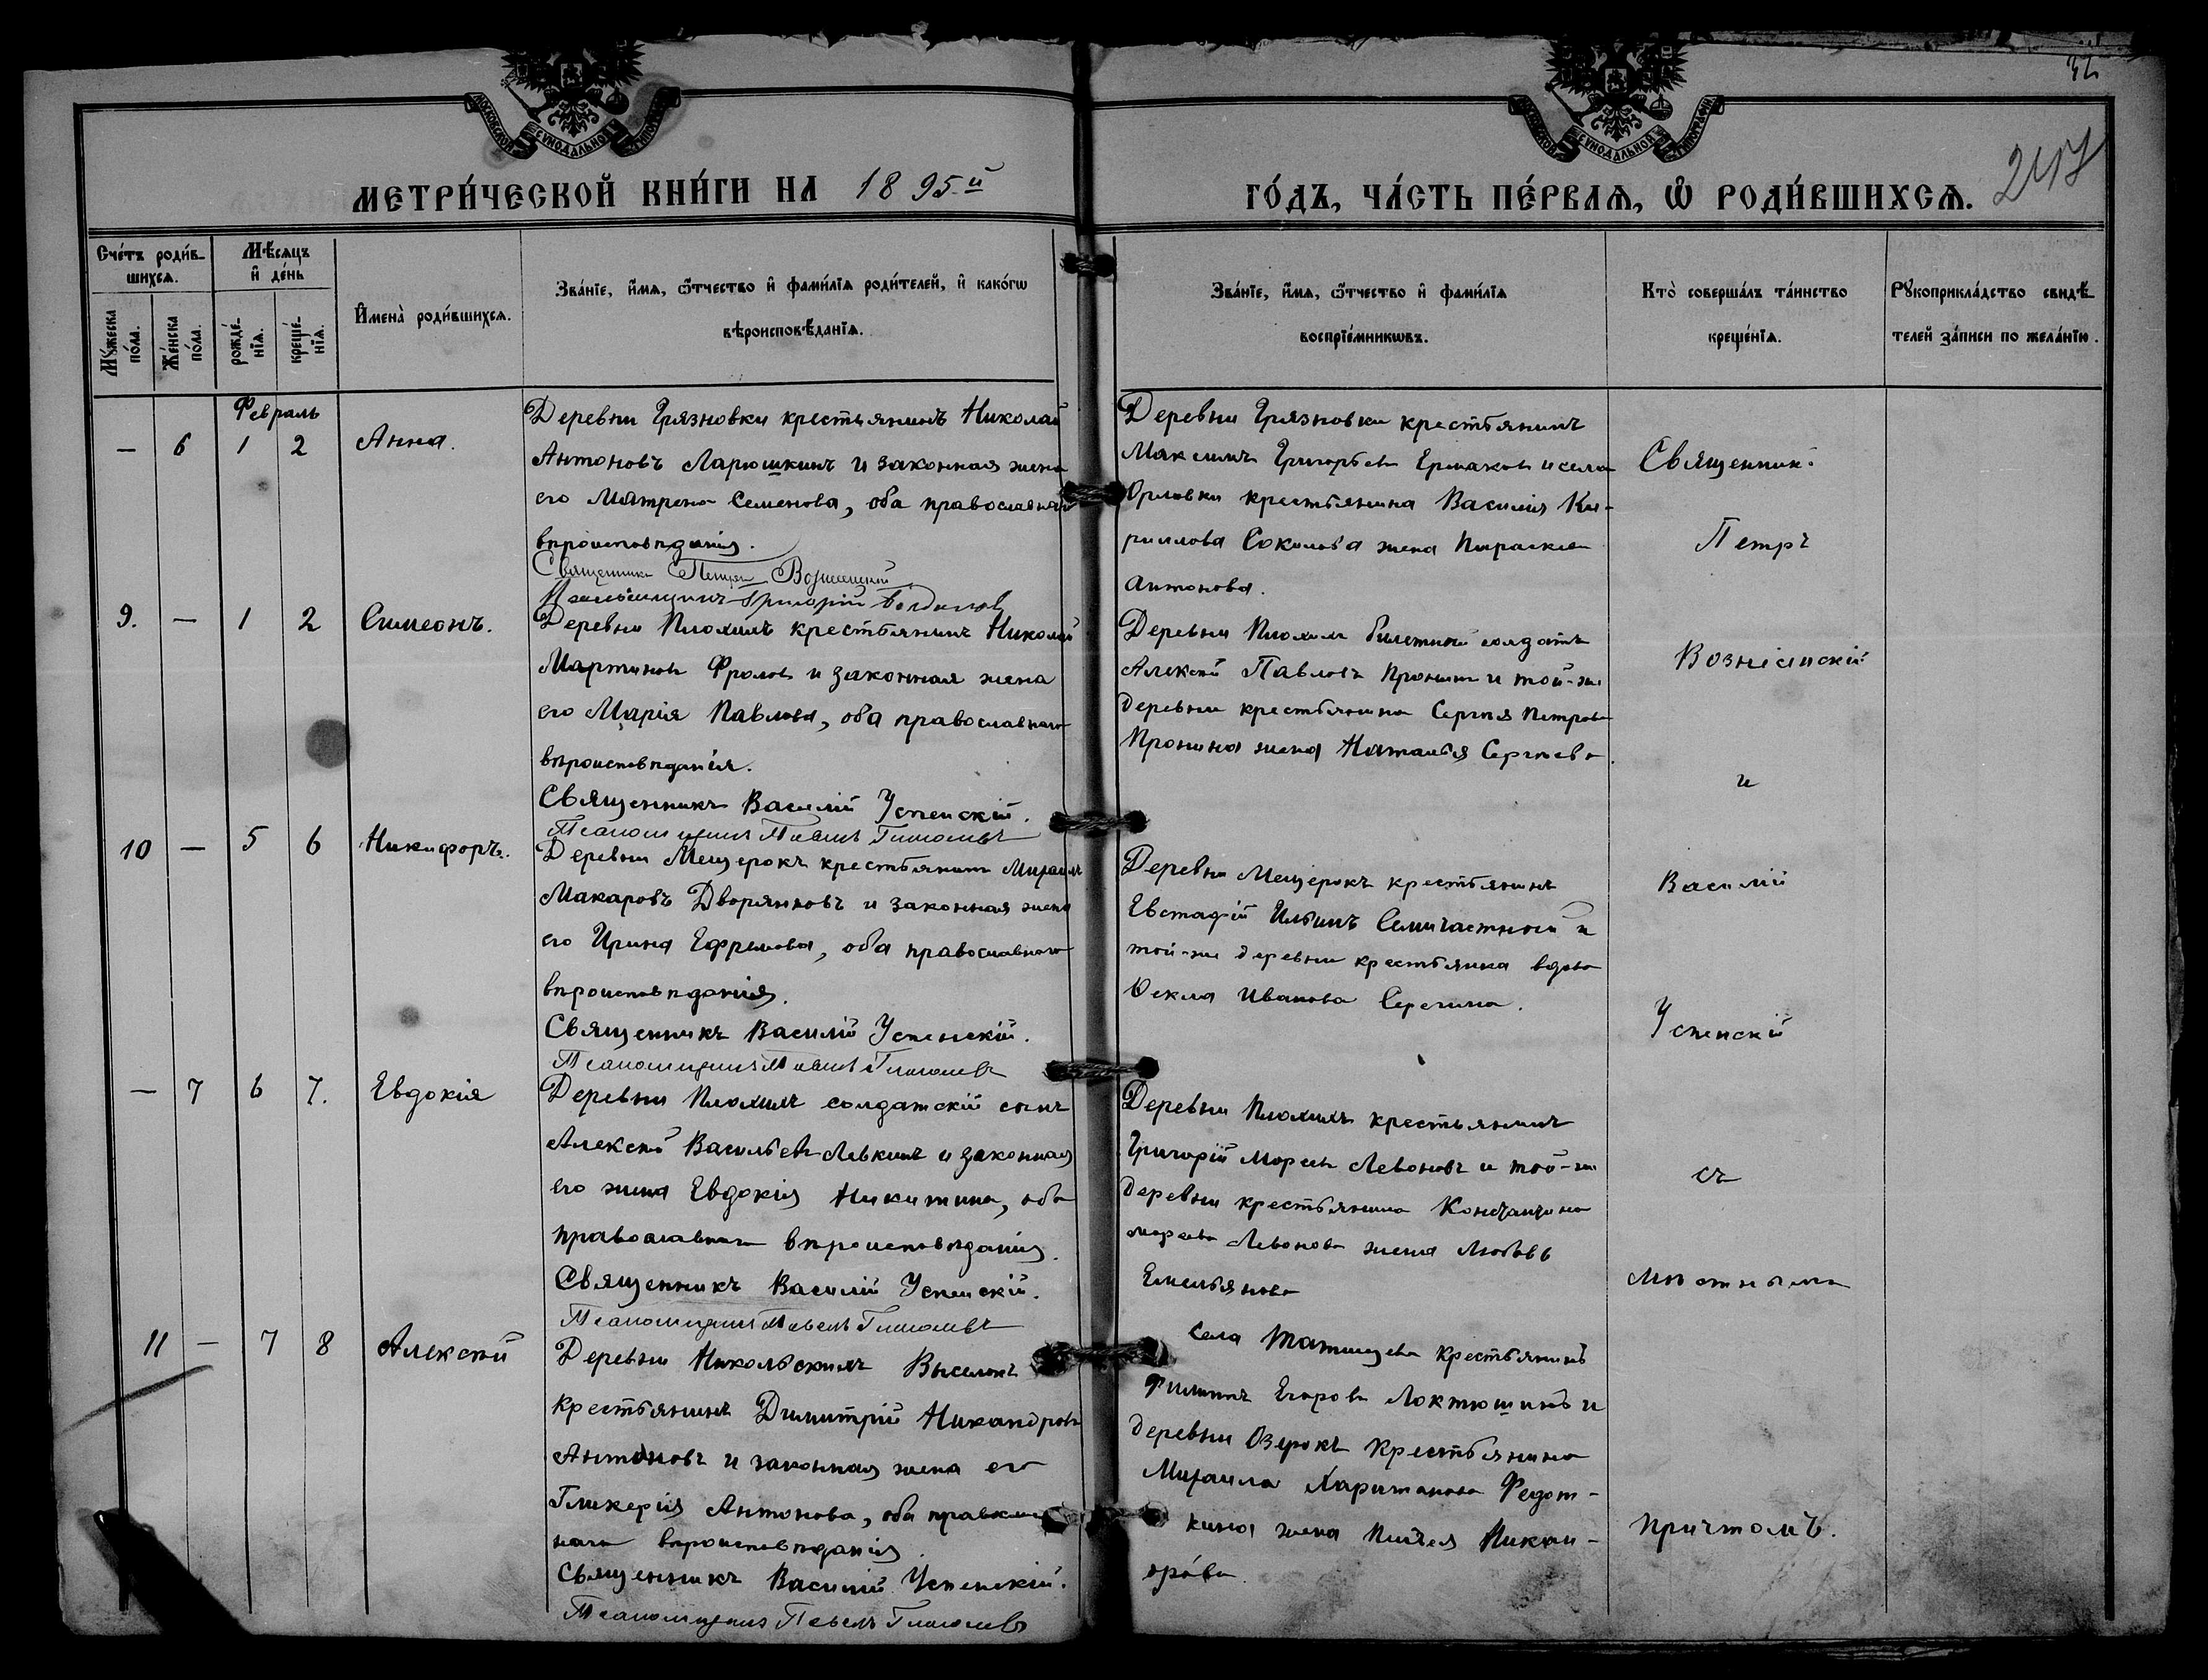 32
217
МОСКОВСКОЙ СѴНОДАЛЬНОЙ ТИПОГРАФІИ
МОСКОВСКОЙ СѴНОДАЛЬНОЙ ТИПОГРАФІИ
МЕТРИ́ЧЕСКОЙ КНИ́ГИ НА 1895й
ГО́ДЪ, ЧА́СТЬ ПЕ́РВАѦ, Ѡ҆ РОДИ́ВШИХСѦ.
Сче́тъ роди́в-
шихсѧ.
Мѣ́сѧцъ
и҆ де́нь
Мꙋ́жеска
по́ла.
Же́нска
по́ла.
рожде́-
нїѧ.
креще́-
нїѧ.
И҆мена̀ роди́вшихсѧ.
Зва́нїе, и҆́мѧ, ѻ҆́тчество и҆ фами́лїѧ роди́телей, и҆ како́гѡ
вѣроисповѣ́данїѧ.
Зва́нїе, и҆́мѧ, ѻ҆́тчество и҆ фами́лїѧ
воспрїе́мникѡвъ.
Кто̀ соверша́лъ та́инство
креще́нїѧ.
Рꙋкоприкла́дство свидѣ́-
телей за́писи по жела́нїю.
Февраль
— 6 1 2 Анна.
Деревни Грязновки крестьянинъ Николай
Антоновъ Ларюшкинъ и законная жена
его Матрена Семенова, оба православнаго
вѣроисповѣданія.
Священникъ Петръ Вознесенскій
Псаломщикъ Григорій
Деревни Грязновки крестьянинъ
Максимъ Григорьевъ Ермаковъ и села
Орловки крестьянина Василія Ки-
риллова Соколова жена Параскева
Антонова.
9. — 1 2 Симеонъ.
Деревни Плохихъ крестьянинъ Николай
Мартиновъ Фроловъ и законная жена
его Марія Павлова, оба православнаго
вѣроисповѣданія.
Священникъ Василій Успенскій.
Псаломщикъ Павелъ Глаголевъ
Деревни Плохихъ билетный солдатъ
Алексѣй Павловъ Пронинъ и той-же
деревни крестьянина Сергѣя Петрова
Пронина жена Наталья Сергѣева.
10 — 5 6 Никифоръ.
Деревни Мещерокъ крестьянинъ Михаилъ
Макаровъ Дворянковъ и законная жена
его Ирина Ефремова, оба православнаго
вѣроисповѣданія.
Священникъ Василій Успенскій.
Псаломщикъ Павелъ Глаголевъ
Деревни Мещерокъ крестьянинъ
Евстафій Ильинъ Семичастной и
той-же деревни крестьянка вдова
Ѳекла Иванова Серегина.
— 7 6 7. Евдокія
Деревни Плохихъ солдатскій сынъ
Алексѣй Васильевъ Левкинъ и законная
его жена Евдокія Никитина, оба
православнаго вѣроисповѣданія.
Священникъ Василій Успенскій.
Псаломщикъ Павелъ Глаголевъ
Деревни Плохихъ крестьянинъ
Григорій Левоновъ и той-же
деревни крестьянина
Левонова жена Любовь
Емельянова
11 — 7 8 Алексѣй
Деревни Никольскихъ Выселокъ
крестьянинъ Димитрій Никандровъ
Антоновъ и законная жена его
Гликерія Антонова, оба православ-
наго вѣроисповѣданія
Священникъ Василій Успенскій.
Псаломщикъ Павелъ Глаголевъ
Села Татищева крестьянинъ
Филиппъ Егоровъ Локтюшинъ и
деревни Озерокъ крестьянина
Михаила Харитонова Федот-
кина жена Никан-
орова.
Священник:
Петръ
Вознесенскій
и
Василій
Успенскій
съ
мѣстнымъ
причтомъ.